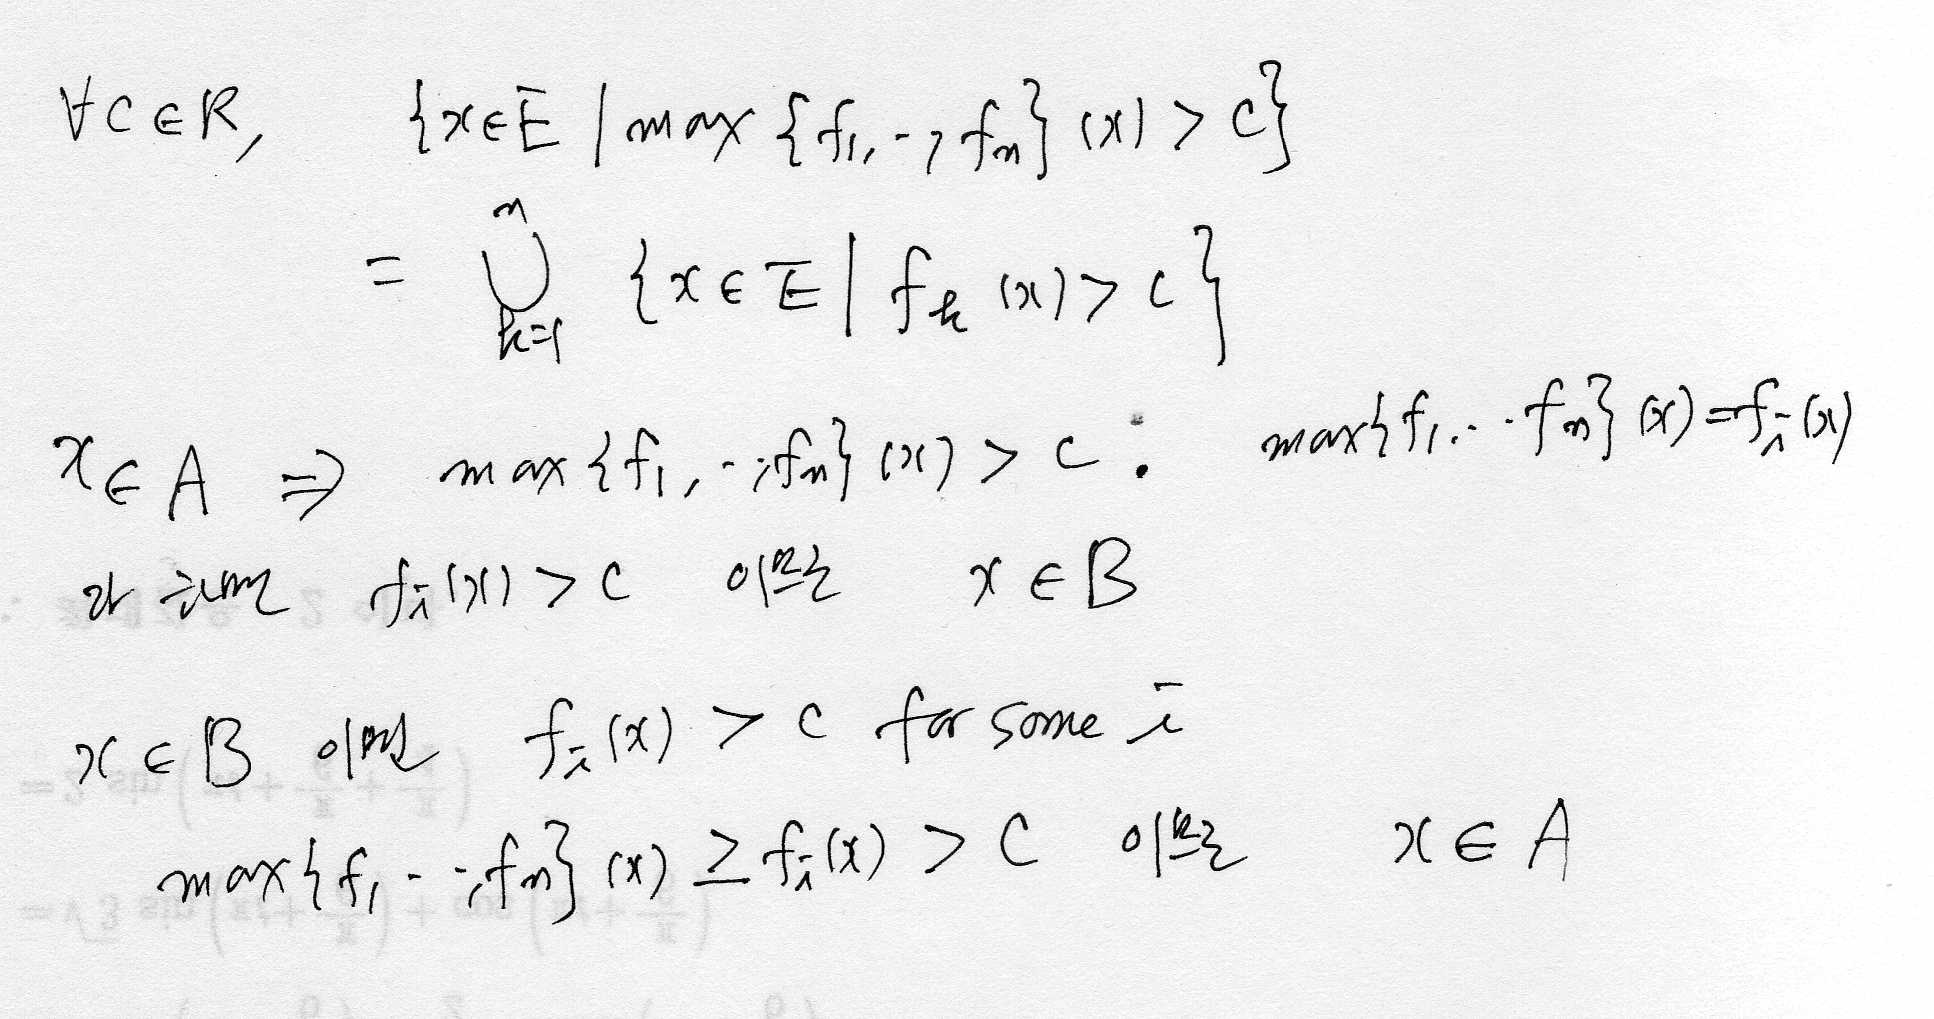 ∀C∈R, {x∈E | max {f₁, -, fₙ} (x) > c}
= ⋃ₖ₌₁ⁿ {x∈E | fₖ (x) > c}
x∈A ⇒ max {f₁, -, fₙ} (x) > c. max{f₁, -- fₙ} (x) = fᵢ(x)
라 하면 fᵢ(x) > c 이므로 x∈B
x∈B 이면 fᵢ(x) > c for some i
max{f₁, -, fₙ} (x) ≥ fᵢ(x) > C 이므로 x∈A